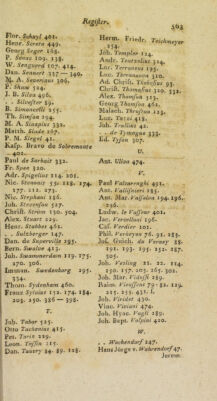 Register.
503
Flor. Schuyl 401.
Henr. Screta 449.
Georg Seger 165.
P. Senac 109. 138.
W. Senguerd 107. 414.
Dan. Sennert 337 — 340.
M. A. Severinus 306.
P. Shaw 524.
J. B. Silva 496.
. . Silvester 89.
B. Simoncelli 255.
Th. Simson 294.
M. A. Sinapius 332.
Matth. Slade 267.
P. M. Slegel 41.
Kasp. Bravo de Sobremonte
401.
Paul de Sorbait 332.
Fr. Spee 320.
Adr. Spigelius 114. 261.
Nic. Stenon 55. 118. 174.
177. 212. 273.
Nic. Stephani 186.
Joh. Stevenson 527.
Christ. Ström 130. 504.
Alex. Stuart 229.
Henr. Stubbes 461.
. . Sulzberger 147.
Dan. de Superville 295.
Bern. Swalve 413.
Joh. Swammerdam 119. 175.
270. 306.
Imman. Swedenborg 295.
334.
Thom. Sydenham 460.
Franz Sylvius 152. 174. 184.
203. 250. 386 — 398.
T.
Joh. Tabor 525.
Otto Tachenius 415.
Pet. Tarin 229.
Leon. Tassin 215.
Dan. Tauvry 84. 89. 128.
Herm. Friedr. Teichmeyer
254.
Joh. Templer 124.
Andr. Tentzelius 314.
Luc. Terranova 195.
Luc. Theranova 310.
Ad. Christ. Thebesius 93.
Christ. Thomasius 320. 332.
Alex. Thomson 525.
Georg Thomson 462.
Malach. Thruston 123.
Luc. Tozzi 418.
Joh. Trullius 42.
. . de Tymogue 333.
Ed. Tyson 307.
U.
Ant. Ulloa 474.
V.
Paul Valcarenghi 491.
Ant. Vallisneri 285.
Ant. Mar. Valsalva 194. 196.
296.
Ludw. le Vasseur 401.
Jac. Vercelloni 196.
Caj. Verdier 202.
Phil. Verheyen 76. 91. 285.
Jos. Guich. du Verney 85.
151. 193. 195. 252. 287.
305.
Joh. Vesling 21. 22. 114.
150. 157. 205. 265. 302.
Joh. Mar. Vidussi 289.
Raim. Vieussens 79-82. 129.
215. 225. 431. f.
Joh. Viridet 430.
Vinc. Viviani 474.
Joh. Hyac. Vogli 289.
Joh. Bapt. Volpini 420.
W.
. . Wachendorf 247.
Hans Jörge v. Wahrendorf 47.